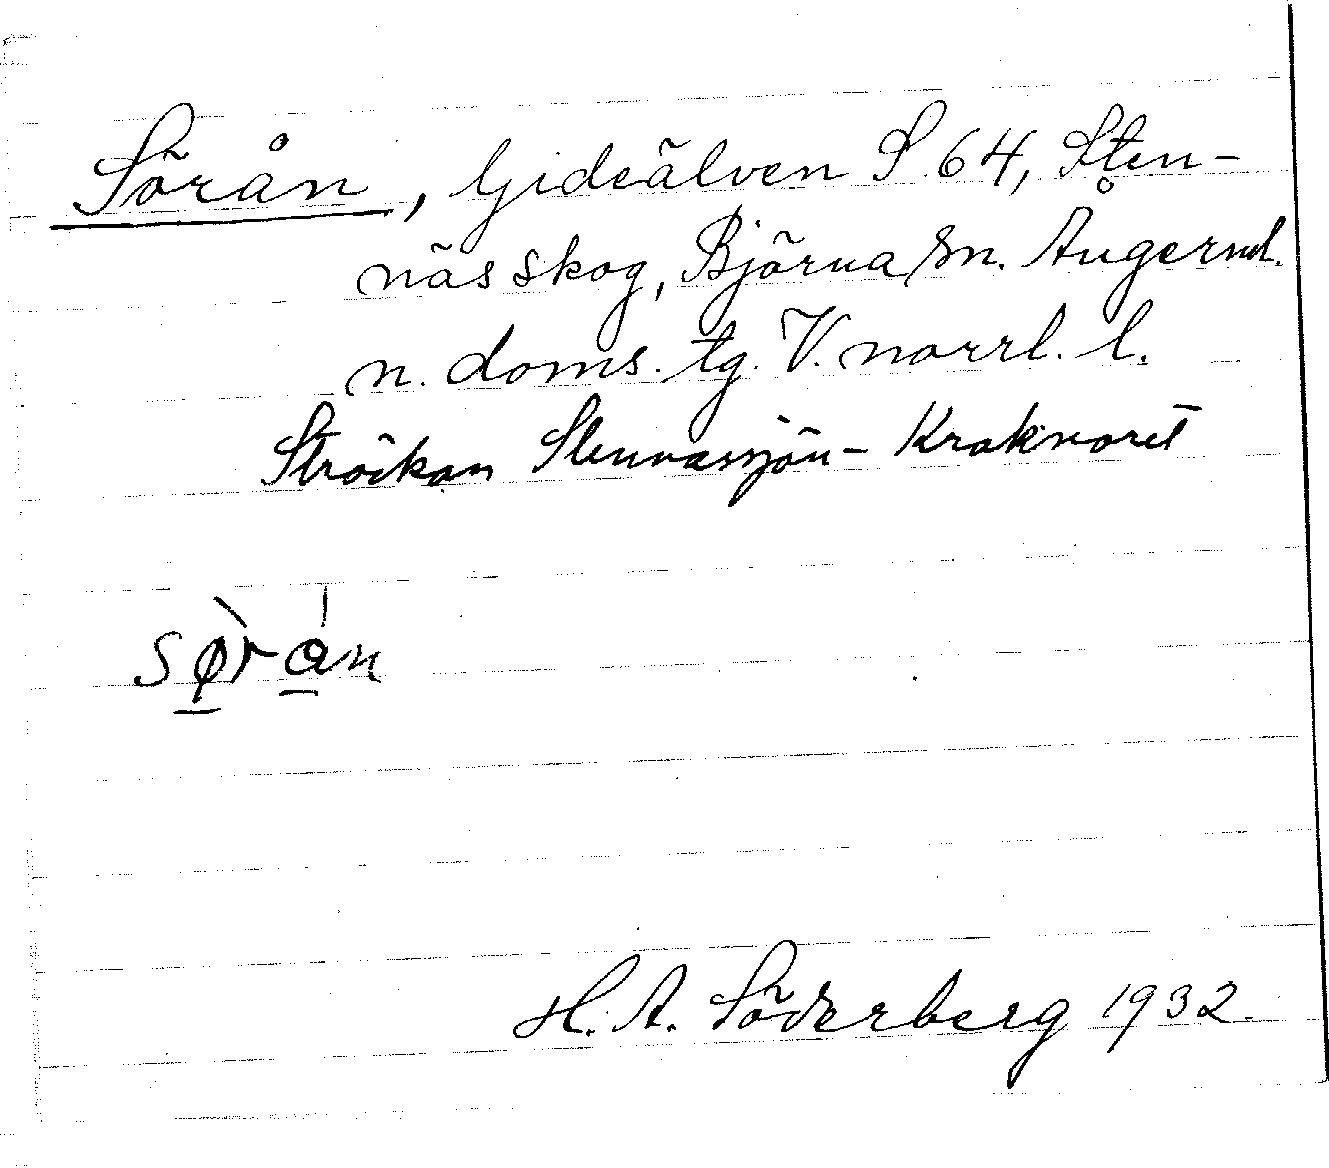 Sörån, Gideälven S 64, Sten-
näs skog, Björna sn. Ångerml.
n. doms. tg. V. norrl. l.
Sträckan Stennässjön - Kroknoret
sø̀rån
H. A. Söderberg 1932.